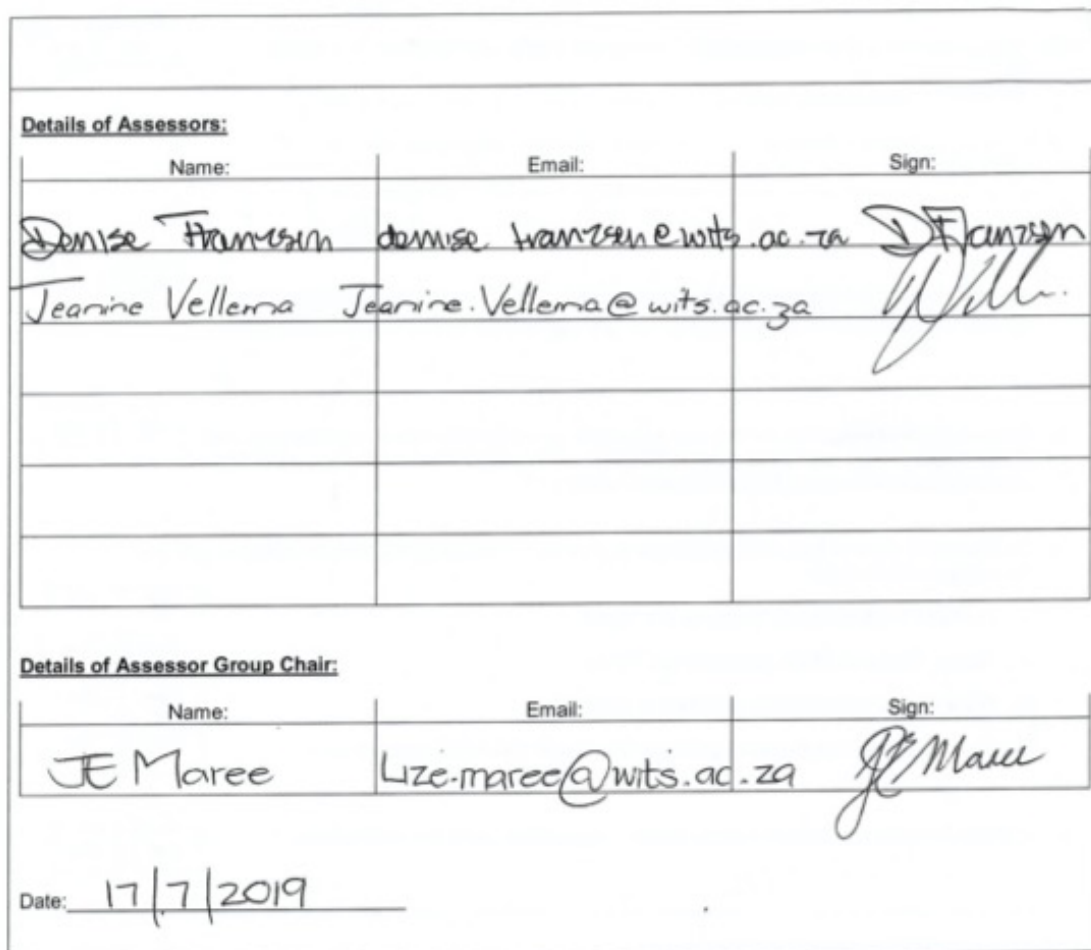 Details of Assessors:
Name: Email: Sign:
Denise Franzsen denise.franzsen@wits.ac.za DFranzsen
Jeanine Vellema Jeanine.Vellema@wits.ac.za
Details of Assessor Group Chair:
Name: Email: Sign:
JE Maree Lize.maree@wits.ac.za JEMaree
Date: 17/7/2019